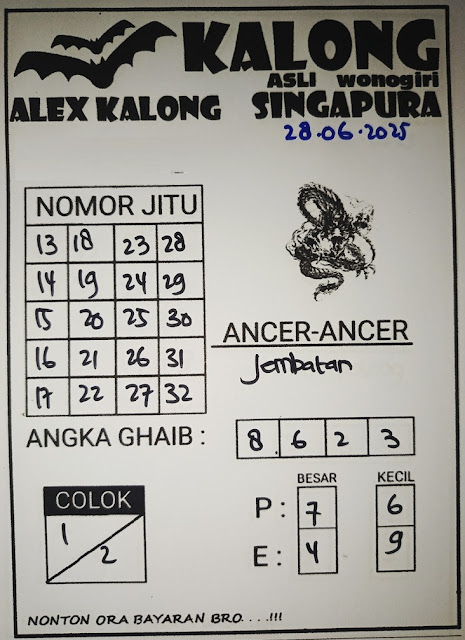 KALONG
ASLI wonogiri
ALEX KALONG SINGAPURA
28.06.2025
NOMOR JITU
13 18 23 28
14 19 24 29
15 20 25 30
16 21 26 31
17 22 27 32
ANCER-ANCER
Jembatan
ANGKA GHAIB : 8. 6 2 3
BESAR KECIL
COLOK
P : 7 6
1
2
E : 4 9
NONTON ORA BAYARAN BRO. . . .!!!